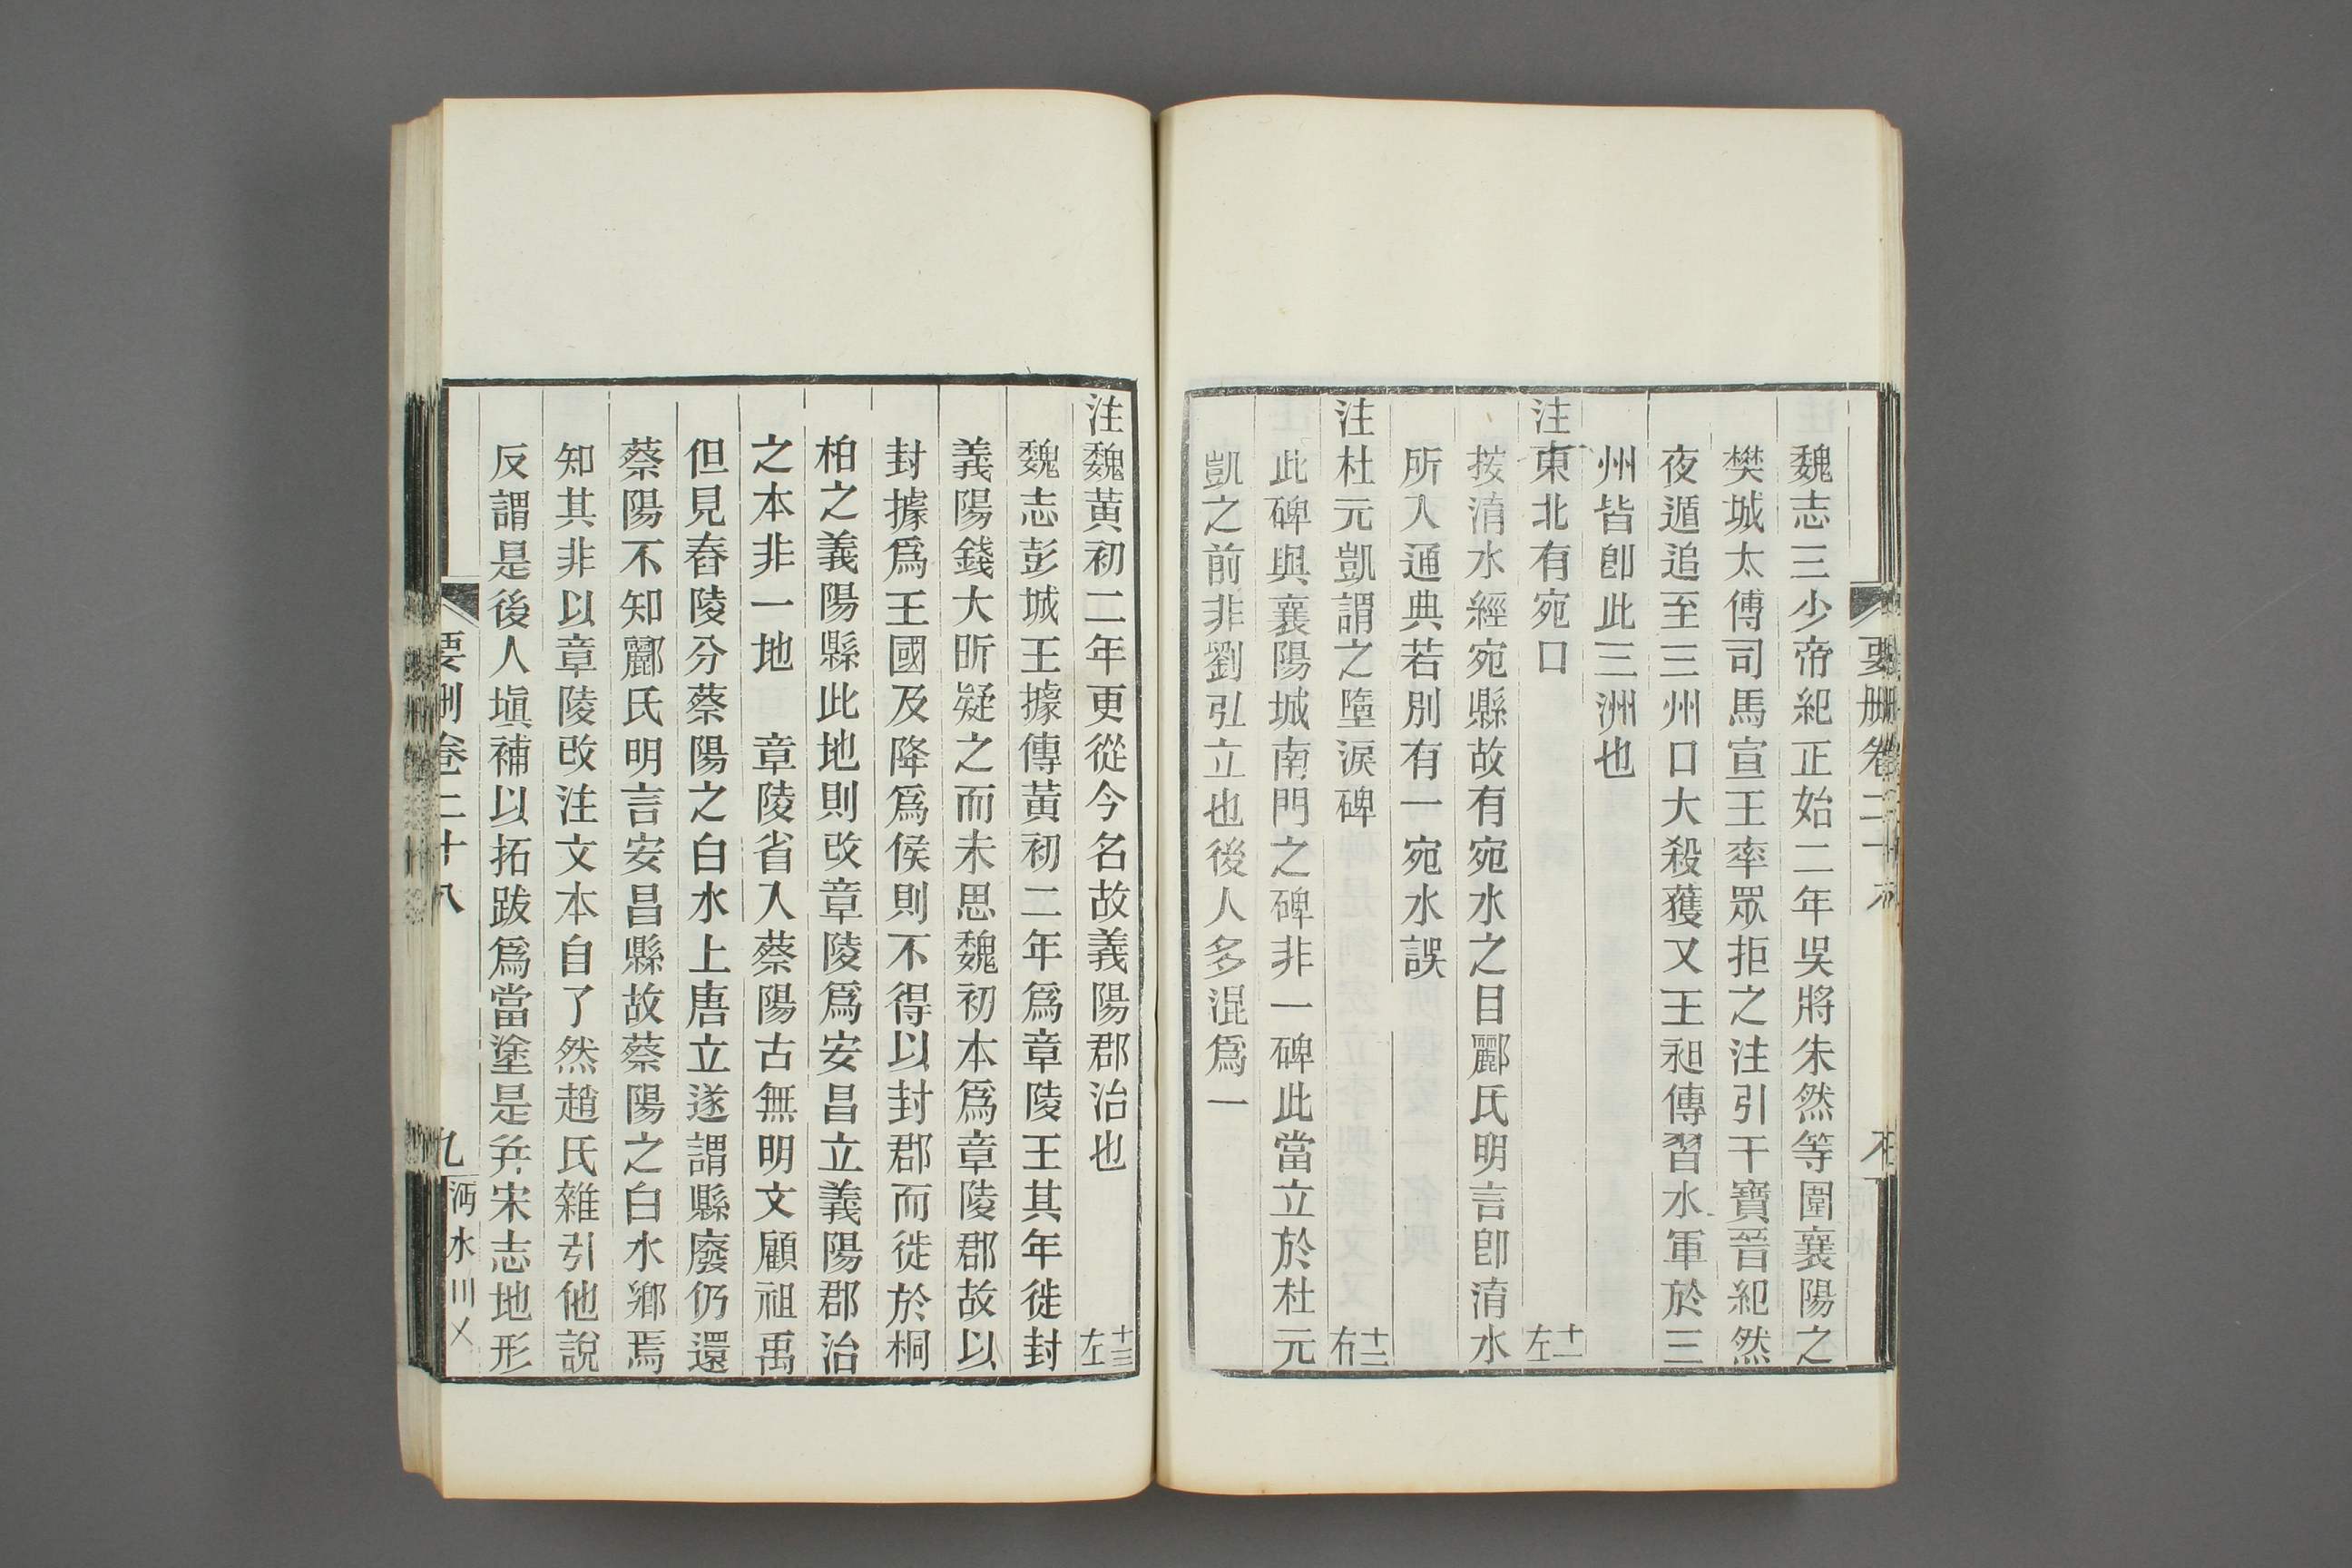 魏志三少帝紀正始二年吳將朱然等圍襄陽之
樊城太傅司馬宣王率眾拒之注引干寶晉紀然
夜遁追至三州口大殺獲又王昶傳習水軍於三
州皆卽此三洲也
注東北有宛口 十一左
按淯水經宛縣故有宛水之目酈氏明言卽淯水
所入通典若別有一宛水誤
注杜元凱謂之墮淚碑 十二右
此碑與襄陽城南門之碑非一碑此當立於杜元
凱之前非劉引立也後人多混爲一
注魏黃初二年更從今名故義陽郡治也 十三左
魏志彭城王據傳黃初二年爲章陵王其年徙封
義陽錢大昕疑之而未思魏初本爲章陵郡故以
封據爲王國及降爲侯則不得以封郡而徙於桐
柏之義陽縣此地則改章陵爲安昌立義陽郡治
之本非一地 章陵省入蔡陽古無明文顧祖禹
但見舂陵分蔡陽之白水上唐立遂謂縣廢仍還
蔡陽不知酈氏明言安昌縣故蔡陽之白水鄉焉
知其非以章陵改注文本自了然趙氏雜引他說
反謂是後人塡補以拓跋爲當塗是幷宋志地形
要刪卷二十八 九 沔水川乂